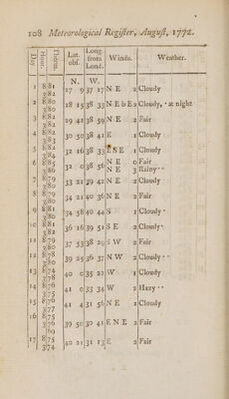 108 Meteorological Register, August, 1772.
Day. Hour. Therm. Lat. obs. Long. from Lond. Winds. Weather.
N. W.
1 8 81 27 9 37 17 N E 2 Cloudy
3 82
2 8 80 28 15 38 33 N E b E 2 Cloudy, · at night
3 80
3 8 82 29 42 38 59 N E 2 Fair
3 83
4 8 82 30 50 38 42 E 1 Cloudy
3 82
5 8 82 32 16 38 33 E S E 1 Cloudy
3 84
6 8 85 32 0 38 56 N E 0 Fair
3 86 N E 3 Rainy · ·
7 8 80 33 21 39 42 N E 2 Cloudy
3 80
8 8 79 34 21 40 36 N E 2 Fair
3 80
9 8 81 34 58 40 44 S 1 Cloudy ·
3 80
10 8 81 36 16 39 51 S E 2 Cloudy ·
3 82
11 8 79 37 53 38 29 S W 2 Fair
3 80
12 8 78 39 25 36 37 N W 2 Cloudy · ·
3 80
13 8 74 40 0 35 22 W 1 Cloudy
3 78
14 8 76 41 0 33 34 W 2 Hazy · ·
3 75
15 8 76 41 4 31 56 N E 1 Cloudy
3 77
16 8 75 39 50 30 41 E N E 2 Fair
3 76
17 8 75 40 21 31 13 E 2 Fair
3 74